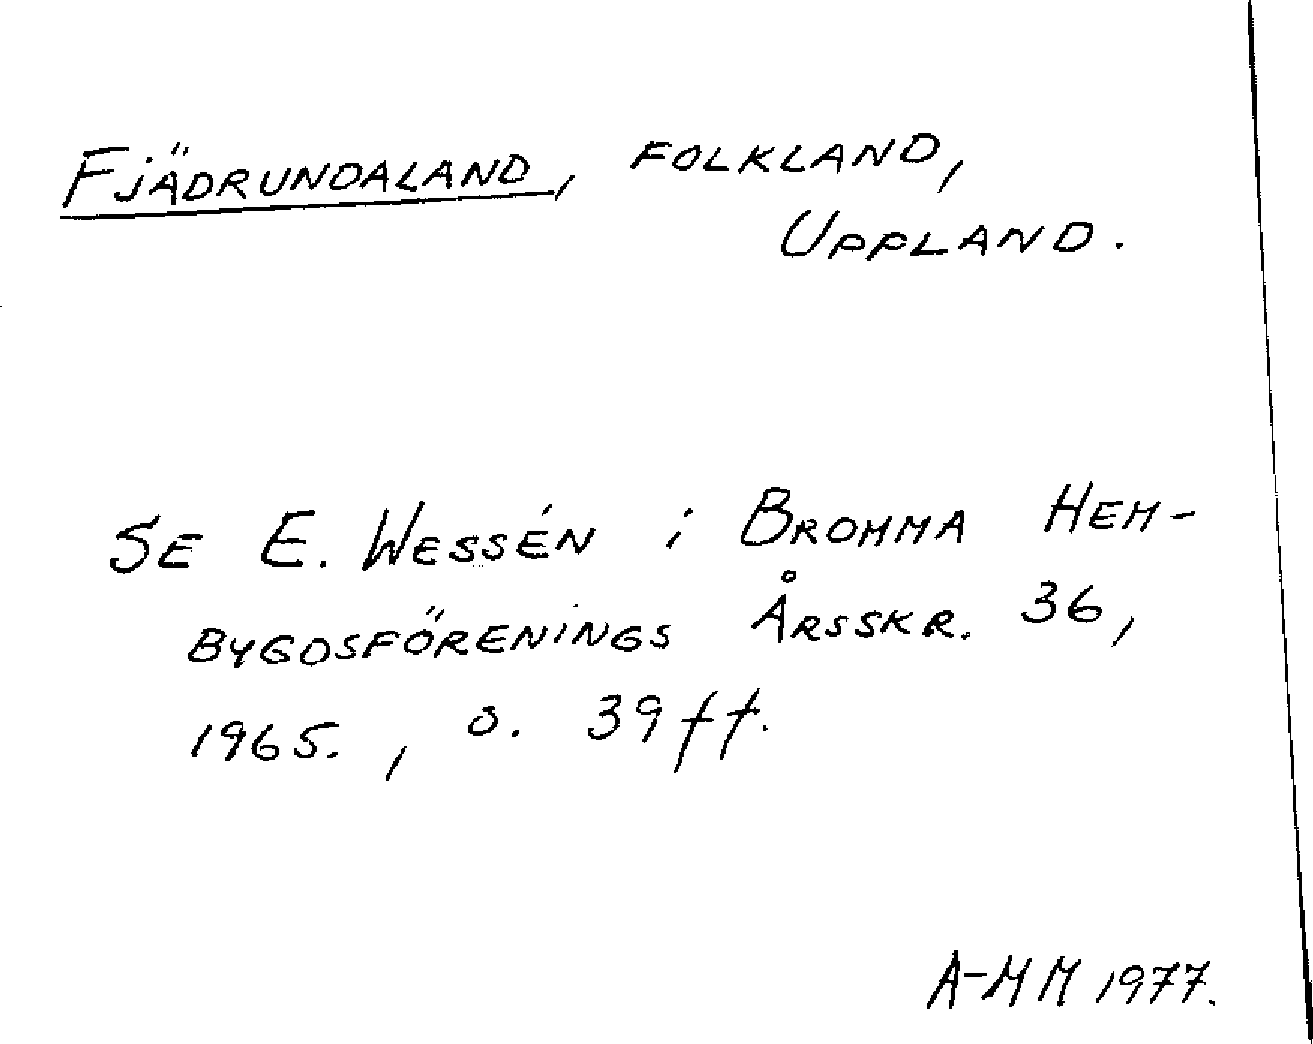 Fjädrundaland, folkland,
Uppland.
Se E. Wessén i Bromma Hem-
bygdsförenings Årsskr. 36,
1965., s. 39 ff.
A-MM 1977.